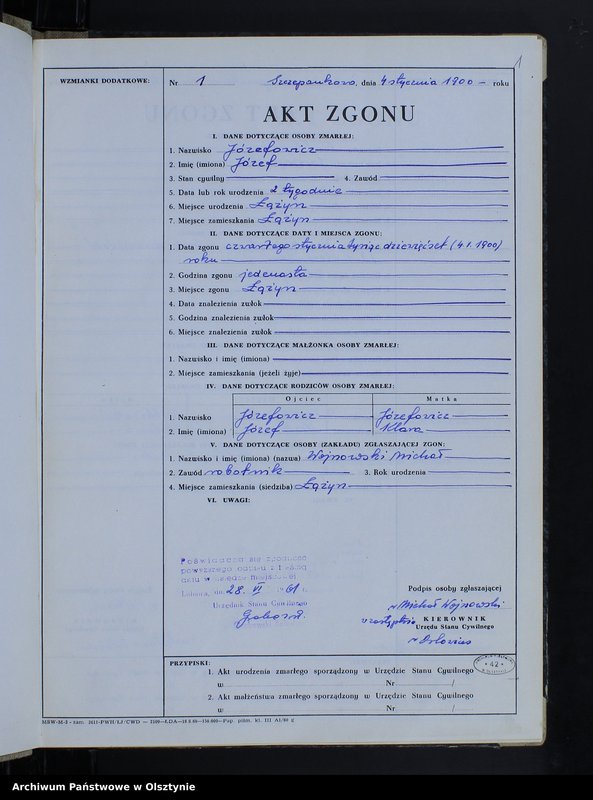 1
WZMIANKI DODATKOWE:
Nr 1 Szczepankowo, dnia 4 stycznia 1900 — roku
AKT ZGONU
I. DANE DOTYCZĄCE OSOBY ZMARŁEJ:
1. Nazwisko Józefowicz
2. Imię (imiona) Józef
3. Stan cywilny 4. Zawód
5. Data lub rok urodzenia 2 tygodnie
6. Miejsce urodzenia Łążyn
7. Miejsce zamieszkania Łążyn
II. DANE DOTYCZĄCE DATY I MIEJSCA ZGONU:
1. Data zgonu czwartego stycznia tysiąc dziewięćset (4 I. 1900)
roku
2. Godzina zgonu jedenasta
3. Miejsce zgonu Łążyn
4. Data znalezienia zwłok
5. Godzina znalezienia zwłok
6. Miejsce znalezienia zwłok
III. DANE DOTYCZĄCE MAŁŻONKA OSOBY ZMARŁEJ:
1. Nazwisko i imię (imiona)
2. Miejsce zamieszkania (jeżeli żyje)
IV. DANE DOTYCZĄCE RODZICÓW OSOBY ZMARŁEJ:
Ojciec Matka
1. Nazwisko Józefowicz Józefowicz
2. Imię (imiona) Józef Klara
V. DANE DOTYCZĄCE OSOBY (ZAKŁADU) ZGŁASZAJĄCEJ ZGON:
1. Nazwisko i imię (imiona) (nazwa) Wojnowski Michał
2. Zawód robotnik 3. Rok urodzenia
4. Miejsce zamieszkania (siedziba) Łążyn
VI. UWAGI:
Poświadcza się zgodność
powyższego odpisu z treścią
aktu w księdze miejscowej
Lubawa, dn. 28. VI 1961 r.
Urzędnik Stanu Cywilnego
Podpis osoby zgłaszającej
Michał Wojnowski
KIEROWNIK
Urzędu Stanu Cywilnego
42
PRZYPISKI:
1. Akt urodzenia zmarłego sporządzony w Urzędzie Stanu Cywilnego
w Nr /
2. Akt małżeństwa zmarłego sporządzony w Urzędzie Stanu Cywilnego
w Nr /
Archiwum Państwowe w Olsztynie